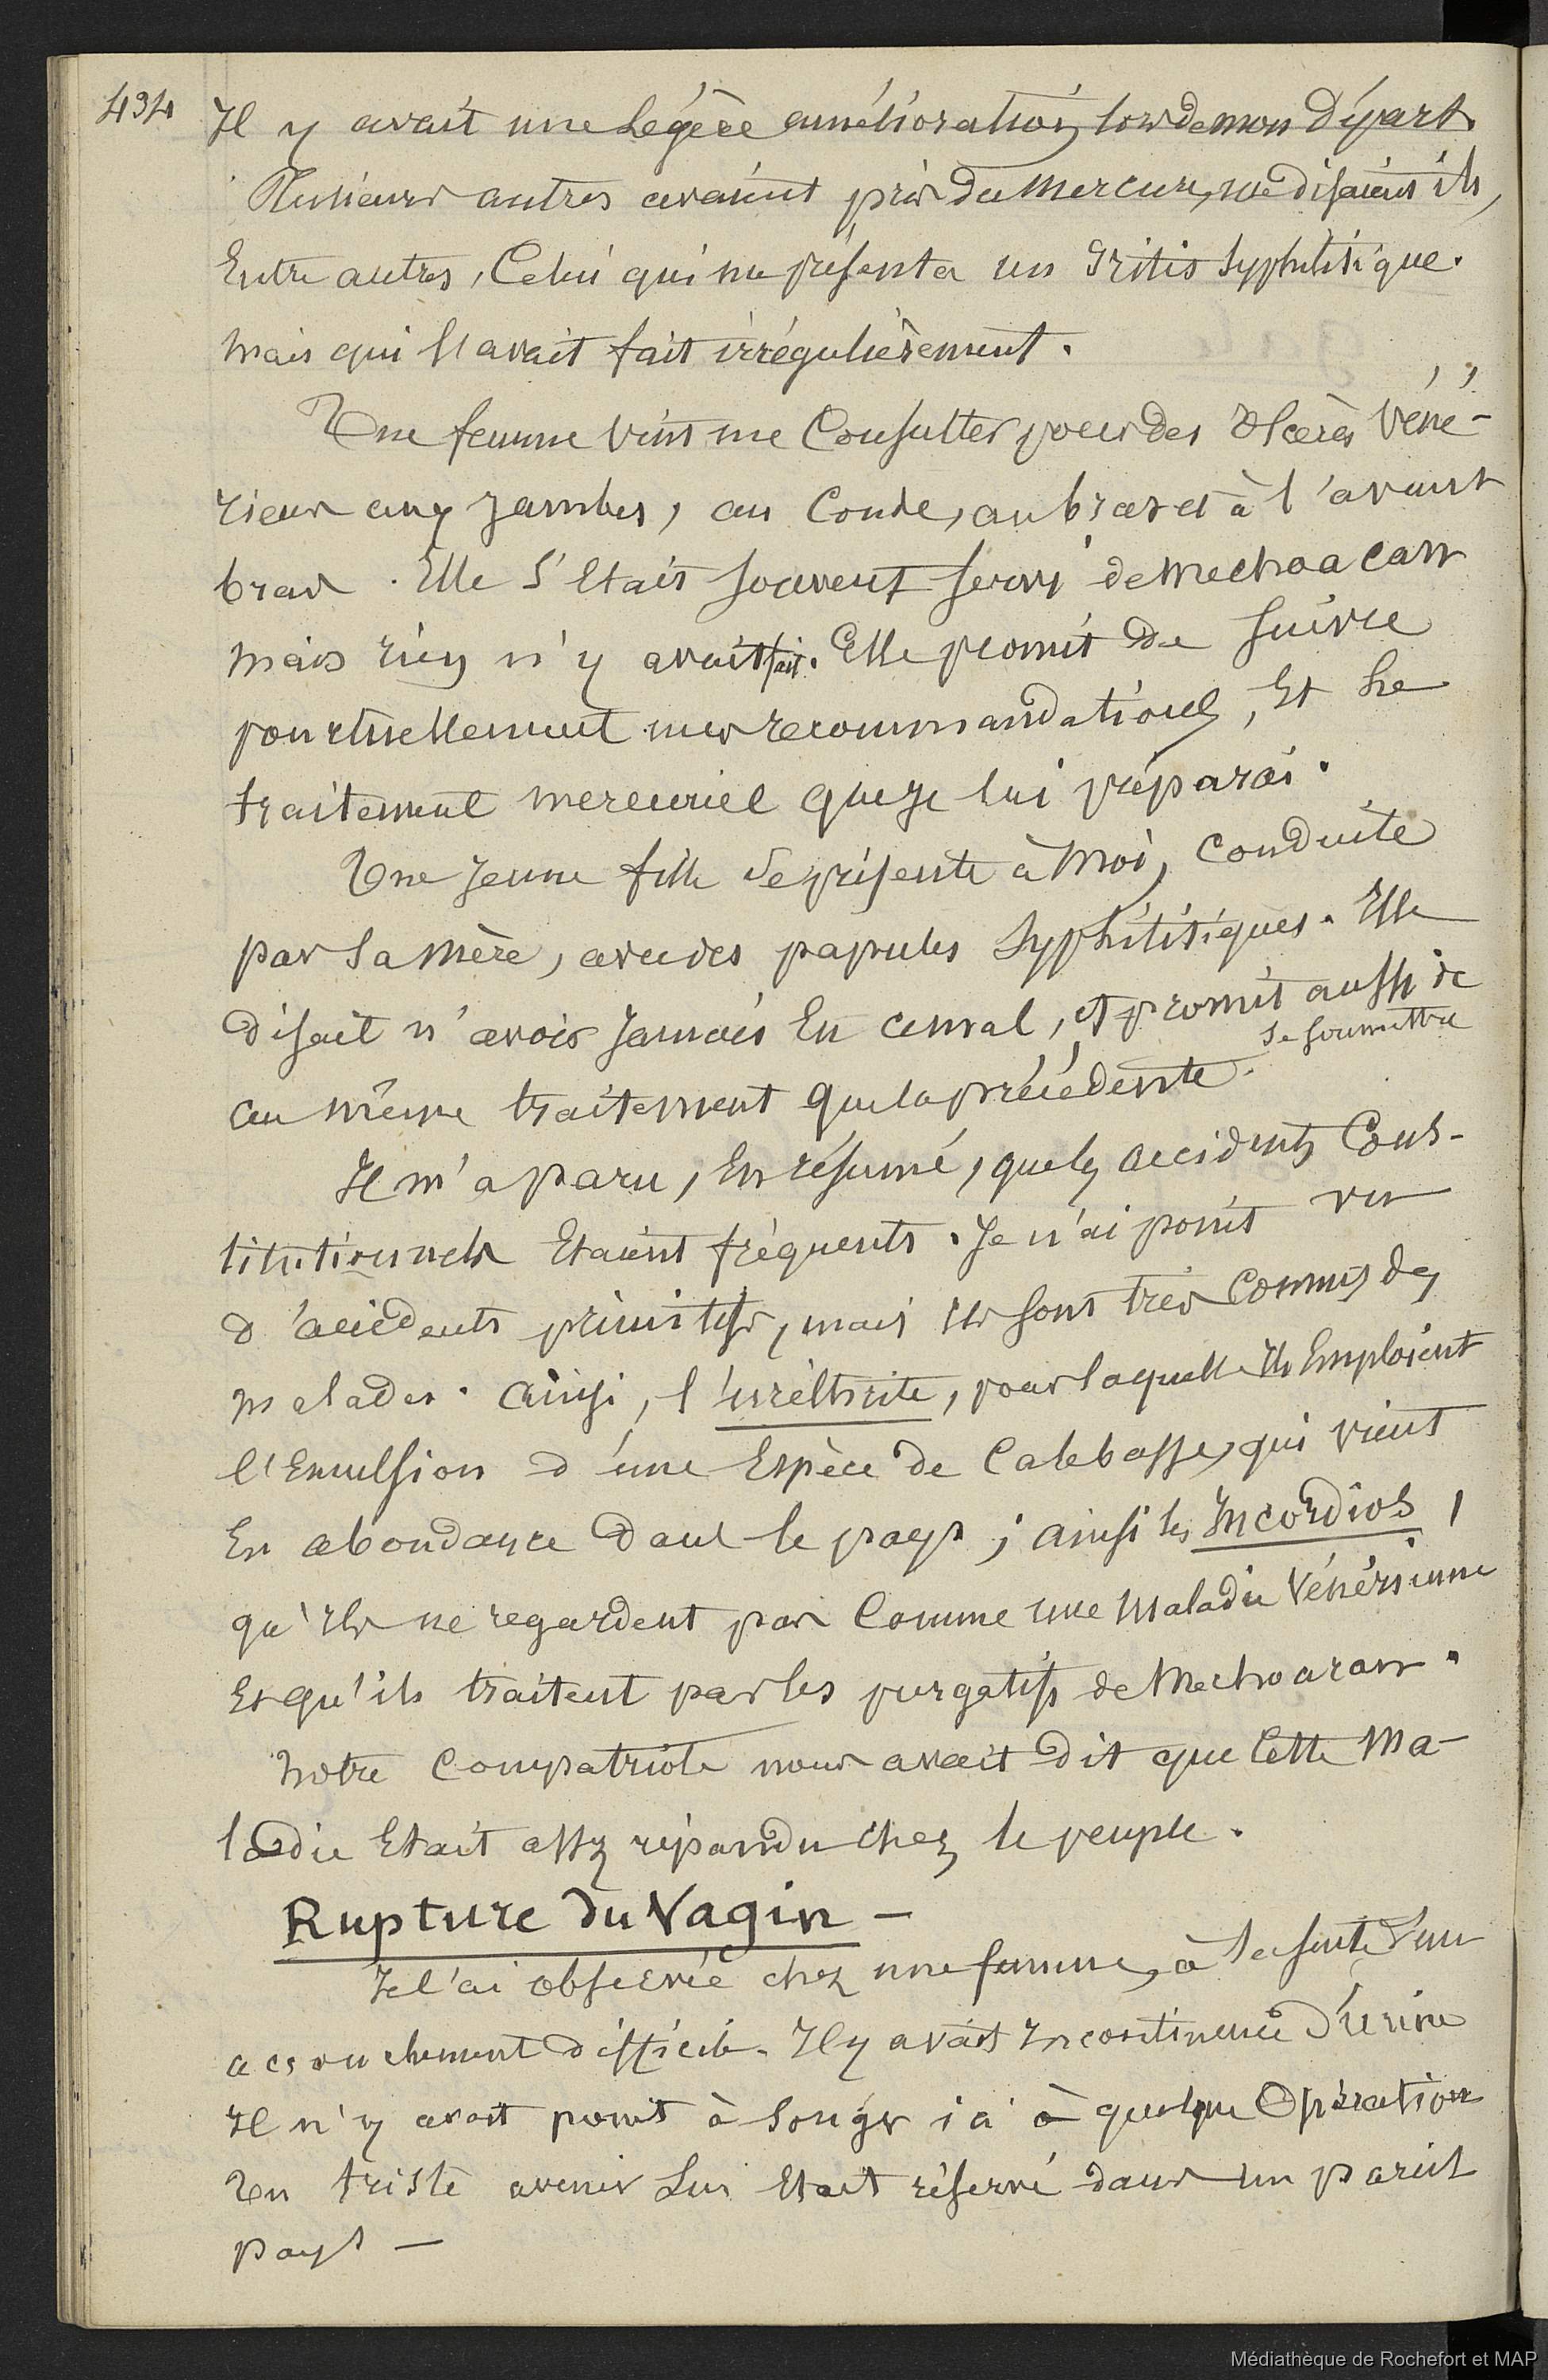 434
Il y avait une légère amélioration, lors de mon Départ.
Plusieurs autres avaient pris du Mercure, me disaient ils,
Entre autres, Celui qui me présenta un Iritis Syphilitique.
Mais qui l'avait fait irrégulièrement.
Une femme vint me Consulter pour des Ulcères Véné-
riens aux jambes, au Coude, au bras et à l'avant
bras. Elle s'était souvent servi de Mechoacan
Mais rien n'y avait fait. Elle promit de suivre
ponctuellement mes recommandations, Et le
traitement mercuriel que je lui préparai.
Une jeune fille se présente à Moi, Conduite
par sa Mère, avec des papules Syphilitiques. Elle
disait n'avoir jamais Eu ce mal, et promit aussi de
se soumettre
au même traitement que la précédente.
Il m'a paru, En résumé, que les accidents Cons-
titutionnels Etaient fréquents. Je n'ai point vu
d'accidents primitifs, mais ils sont très connus des
malades. Ainsi, l'uréthrite, pour laquelle ils Emploient
l'Emulsion d'une Espèce de Calebasse, qui vient
En abondance dans le pays ; ainsi les Incordios,
qu'ils ne regardent pas Comme une Maladie Vénérienne
Et qu'ils traitent par les purgatifs de Mechoacan.
Notre Compatriote nous avait dit que Cette Ma-
ladie Etait assez répandu chez le peuple.
Rupture du Vagin -
Je l'ai observée chez une femme, à la suite d'un
accouchement difficile. Il y avait Incontinence d'urine
Il n'y avait point à songer ici à quelque Opération
Un triste avenir lui Etait réservé dans un pareil
pays -
Médiathèque de Rochefort et MAP